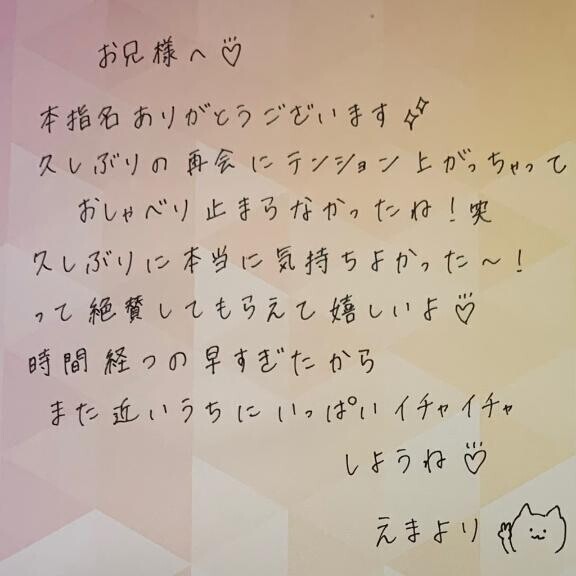 お兄様へ♡
本指名ありがとうございます✨
久しぶりの再会にテンション上がっちゃって
おしゃべり止まらなかったね！笑
久しぶりに本当に気持ちよかった〜！
って絶賛してもらえて嬉しいよ♡
時間経つの早すぎたから
また近いうちにいっぱいイチャイチャ
しようね♡
えまより